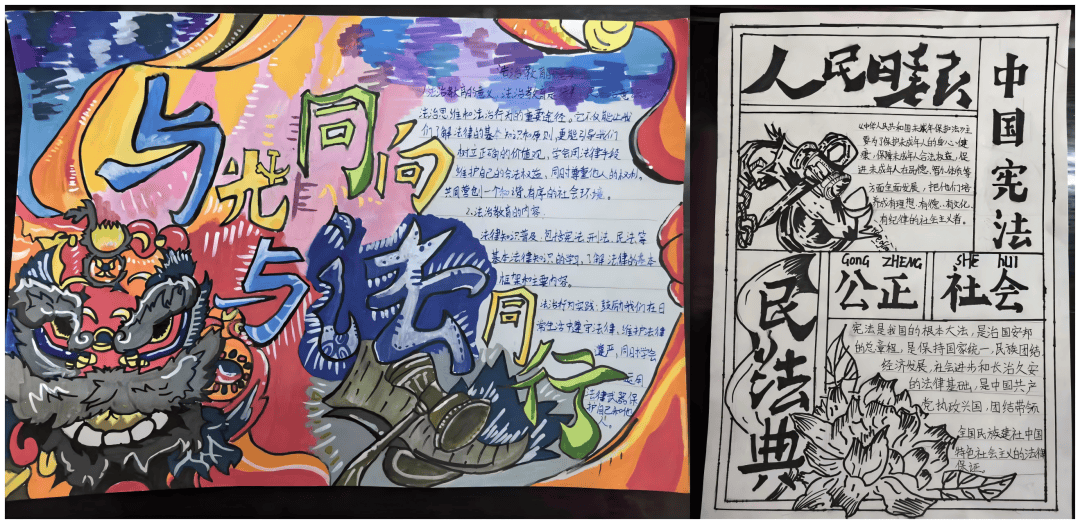 与光同向
与法同行
法治教育
法治思维和法治行为的重要途径。它不仅能让我
们了解法律的基本知识和原则,更能引导我们
树立正确的价值观,学会用法律手段
维护自己的合法权益,同时尊重他人的权利。
共同营创一个和谐、有序的社会环境。
2.法治教育的内容
法律知识普及:包括宪法、刑法、民法等
基本法律知识的学习,了解法律的基本
框架和主要内容。
法治行为实践:鼓励我们在日
常生活中遵守法律、维护法律
尊严,同时学会
运用
法律武器保
护自己和他
人。
人民日报
中国宪法
《中华人民共和国未成年保护法》主
要为了保护未成年人的身心健
康,保障未成年人合法权益,促
进未成年人在品德、智力、体质等
方面全面发展,把他们培
养成有理想、有德、有文化、
有纪律的社会主义者。
GONG ZHENG
公正
SHE HUI
社会
民法典
宪法是我国的根本大法,是治国安邦
的总章程,是保持国家统一、民族团结、
经济发展、社会进步和长治久安
的法律基础,是中国共产
党执政兴国、团结带领
全国民族建社中国
特色社会主义的法律
保证